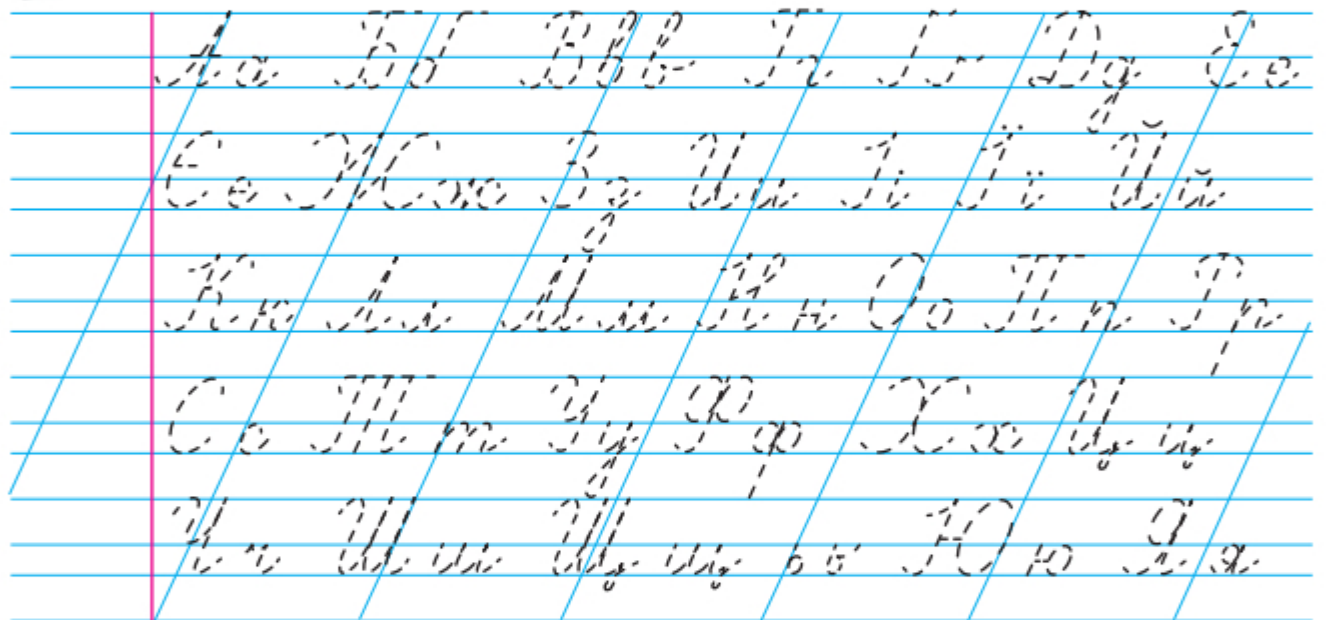 Аа Бб Ввв Гг Ґґ Дд Ее
Єє Жж Зз Ии Іі Її Йй
Кк Лл Мм Нн Оо Пп Рр
Сс Тт Уу Фф Хх Цц
Чч Шш Щщ ьь Юю Яя